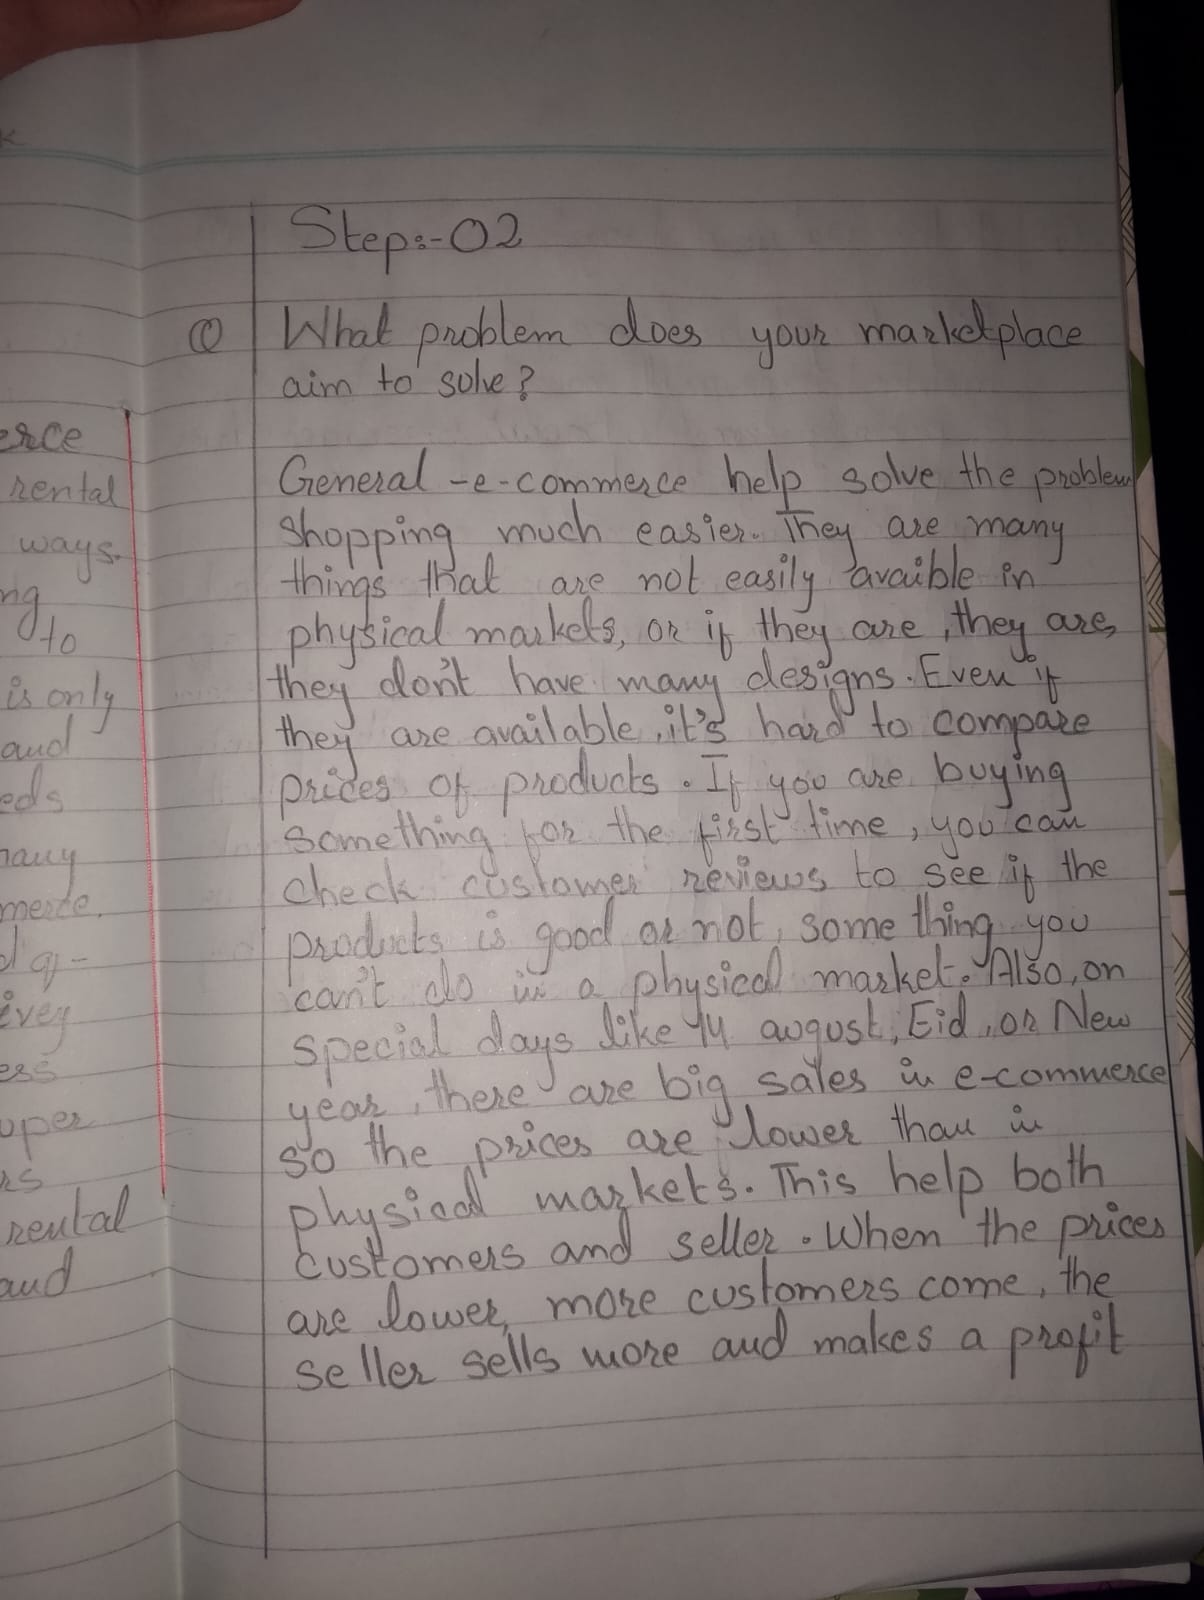 Step:-02
Q What problem does your marketplace
aim to solve?
General -e-commerce help solve the problem
shopping much easier. They are many
things that are not easily avaible in
physical markets, or if they are, they are,
they don't have many designs. Even if
they are available, it's hard to compare
prices of products. If you are buying
something for the first time, you can
check customer reviews to see if the
products is good or not, something you
can't do in a physical market. Also, on
special days like 14 august, Eid, or New
year, there are big sales in e-commerce
so the prices are lower than in
physical markets. This help both
customers and seller. When the prices
are lower, more customers come, the
seller sells more and makes a profit
erce
rental
ways.
ng
to
is only
and
eds
many
merce.
ivey
ess
uper
rs
rental
and